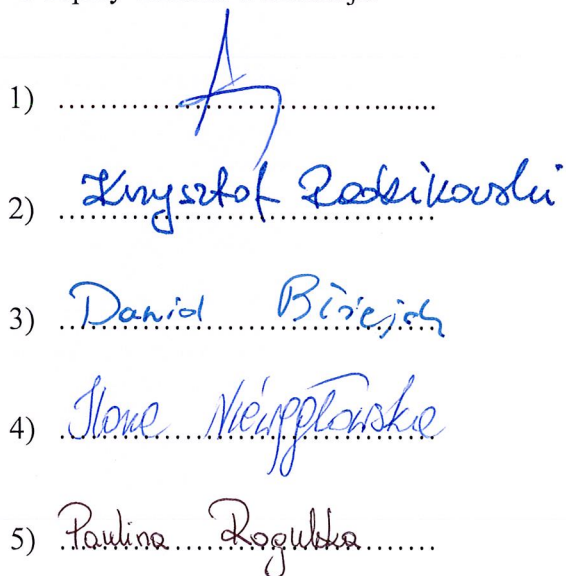 1) ....................................
2) Krzysztof Radzikowski
3) Dawid
4) Ilona Niewęgłowska
5) Paulina Rogulska